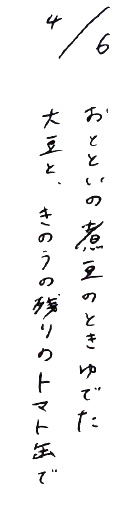 4/6
おとといの煮豆のときゆでた
大豆と、きのうの残りのトマト缶で